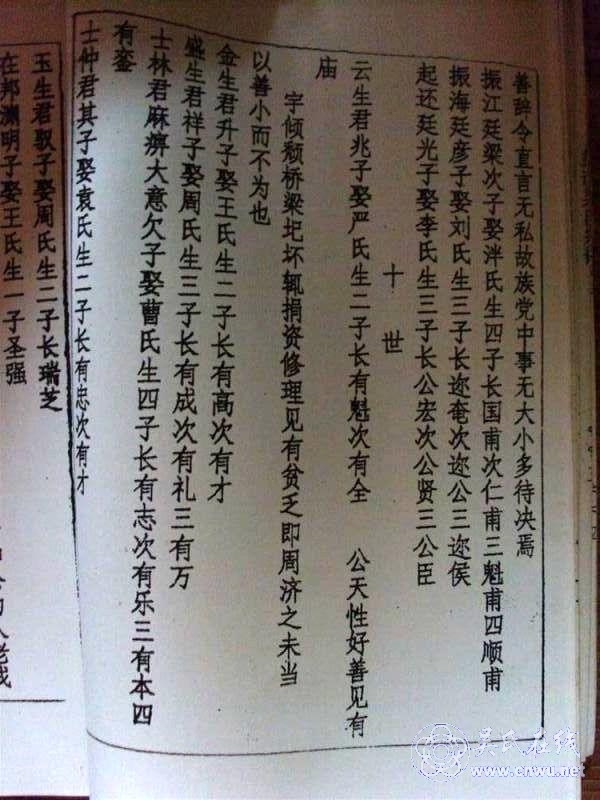 善辞令直言无私故族党中事无大小多待决焉
振江廷梁次子娶泮氏生四子长国甫次仁甫三魁甫四顺甫
振海廷彦子娶刘氏生三子长迩奄次迩公三迩侯
起还廷光子娶李氏生三子长公宏次公贤三公臣
十世
云生君兆子娶严氏生二子长有魁次有全 公天性好善见有
庙
宇倾颓桥梁圯坏辄捐资修理见有贫乏即周济之未当
以善小而不为也
金生君升子娶王氏生二子长有高次有才
盛生君祥子娶周氏生三子长有成次有礼三有万
士林君麻痹大意欠子娶曹氏生四子长有志次有乐三有本四
有銮
士仲君其子娶袁氏生二子长有忠次有才
玉生君驭子娶周氏生二子长瑞芝
在邦渊明子娶王氏生一子圣强
吴氏在线
www.cnwu.net